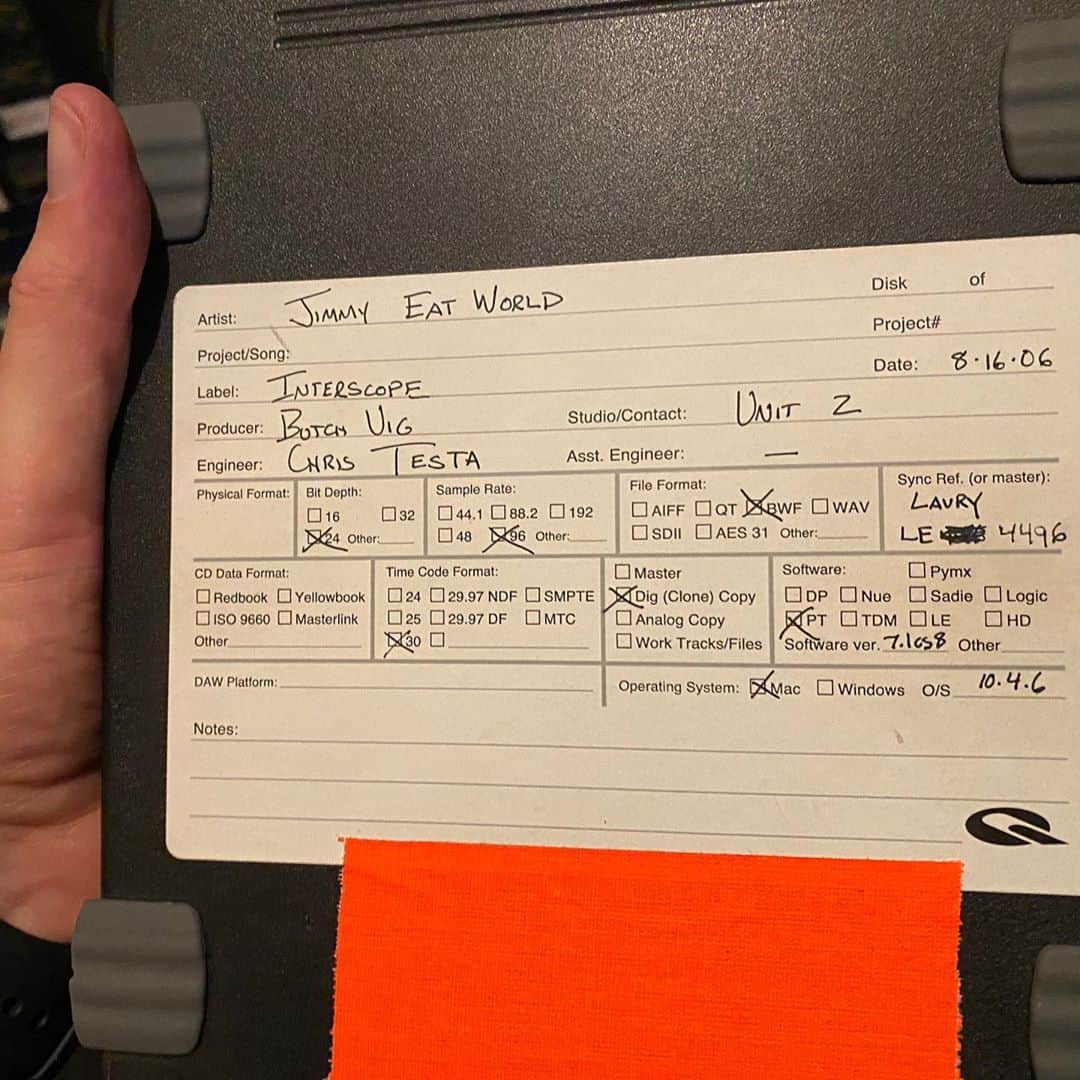 Artist: JIMMY EAT WORLD Disk of
Project/Song: Project#
Label: INTERSCOPE Date: 8·16·06
Producer: BUTCH VIG Studio/Contact: UNIT 2
Engineer: CHRIS TESTA Asst. Engineer: —
Physical Format: Bit Depth: Sample Rate: File Format: Sync Ref. (or master):
16 32 44.1 88.2 192 AIFF QT BWF WAV LAVRY
24 Other: 48 96 Other: SDII AES 31 Other: LE 4496
CD Data Format: Time Code Format: Master Software: Pymx
Redbook Yellowbook 24 29.97 NDF SMPTE Dig (Clone) Copy DP Nue Sadie Logic
ISO 9660 Masterlink 25 29.97 DF MTC Analog Copy PT TDM LE HD
Other 30 Work Tracks/Files Software ver. 7.1cs8 Other
DAW Platform: Operating System: Mac Windows O/S 10.4.6
Notes: